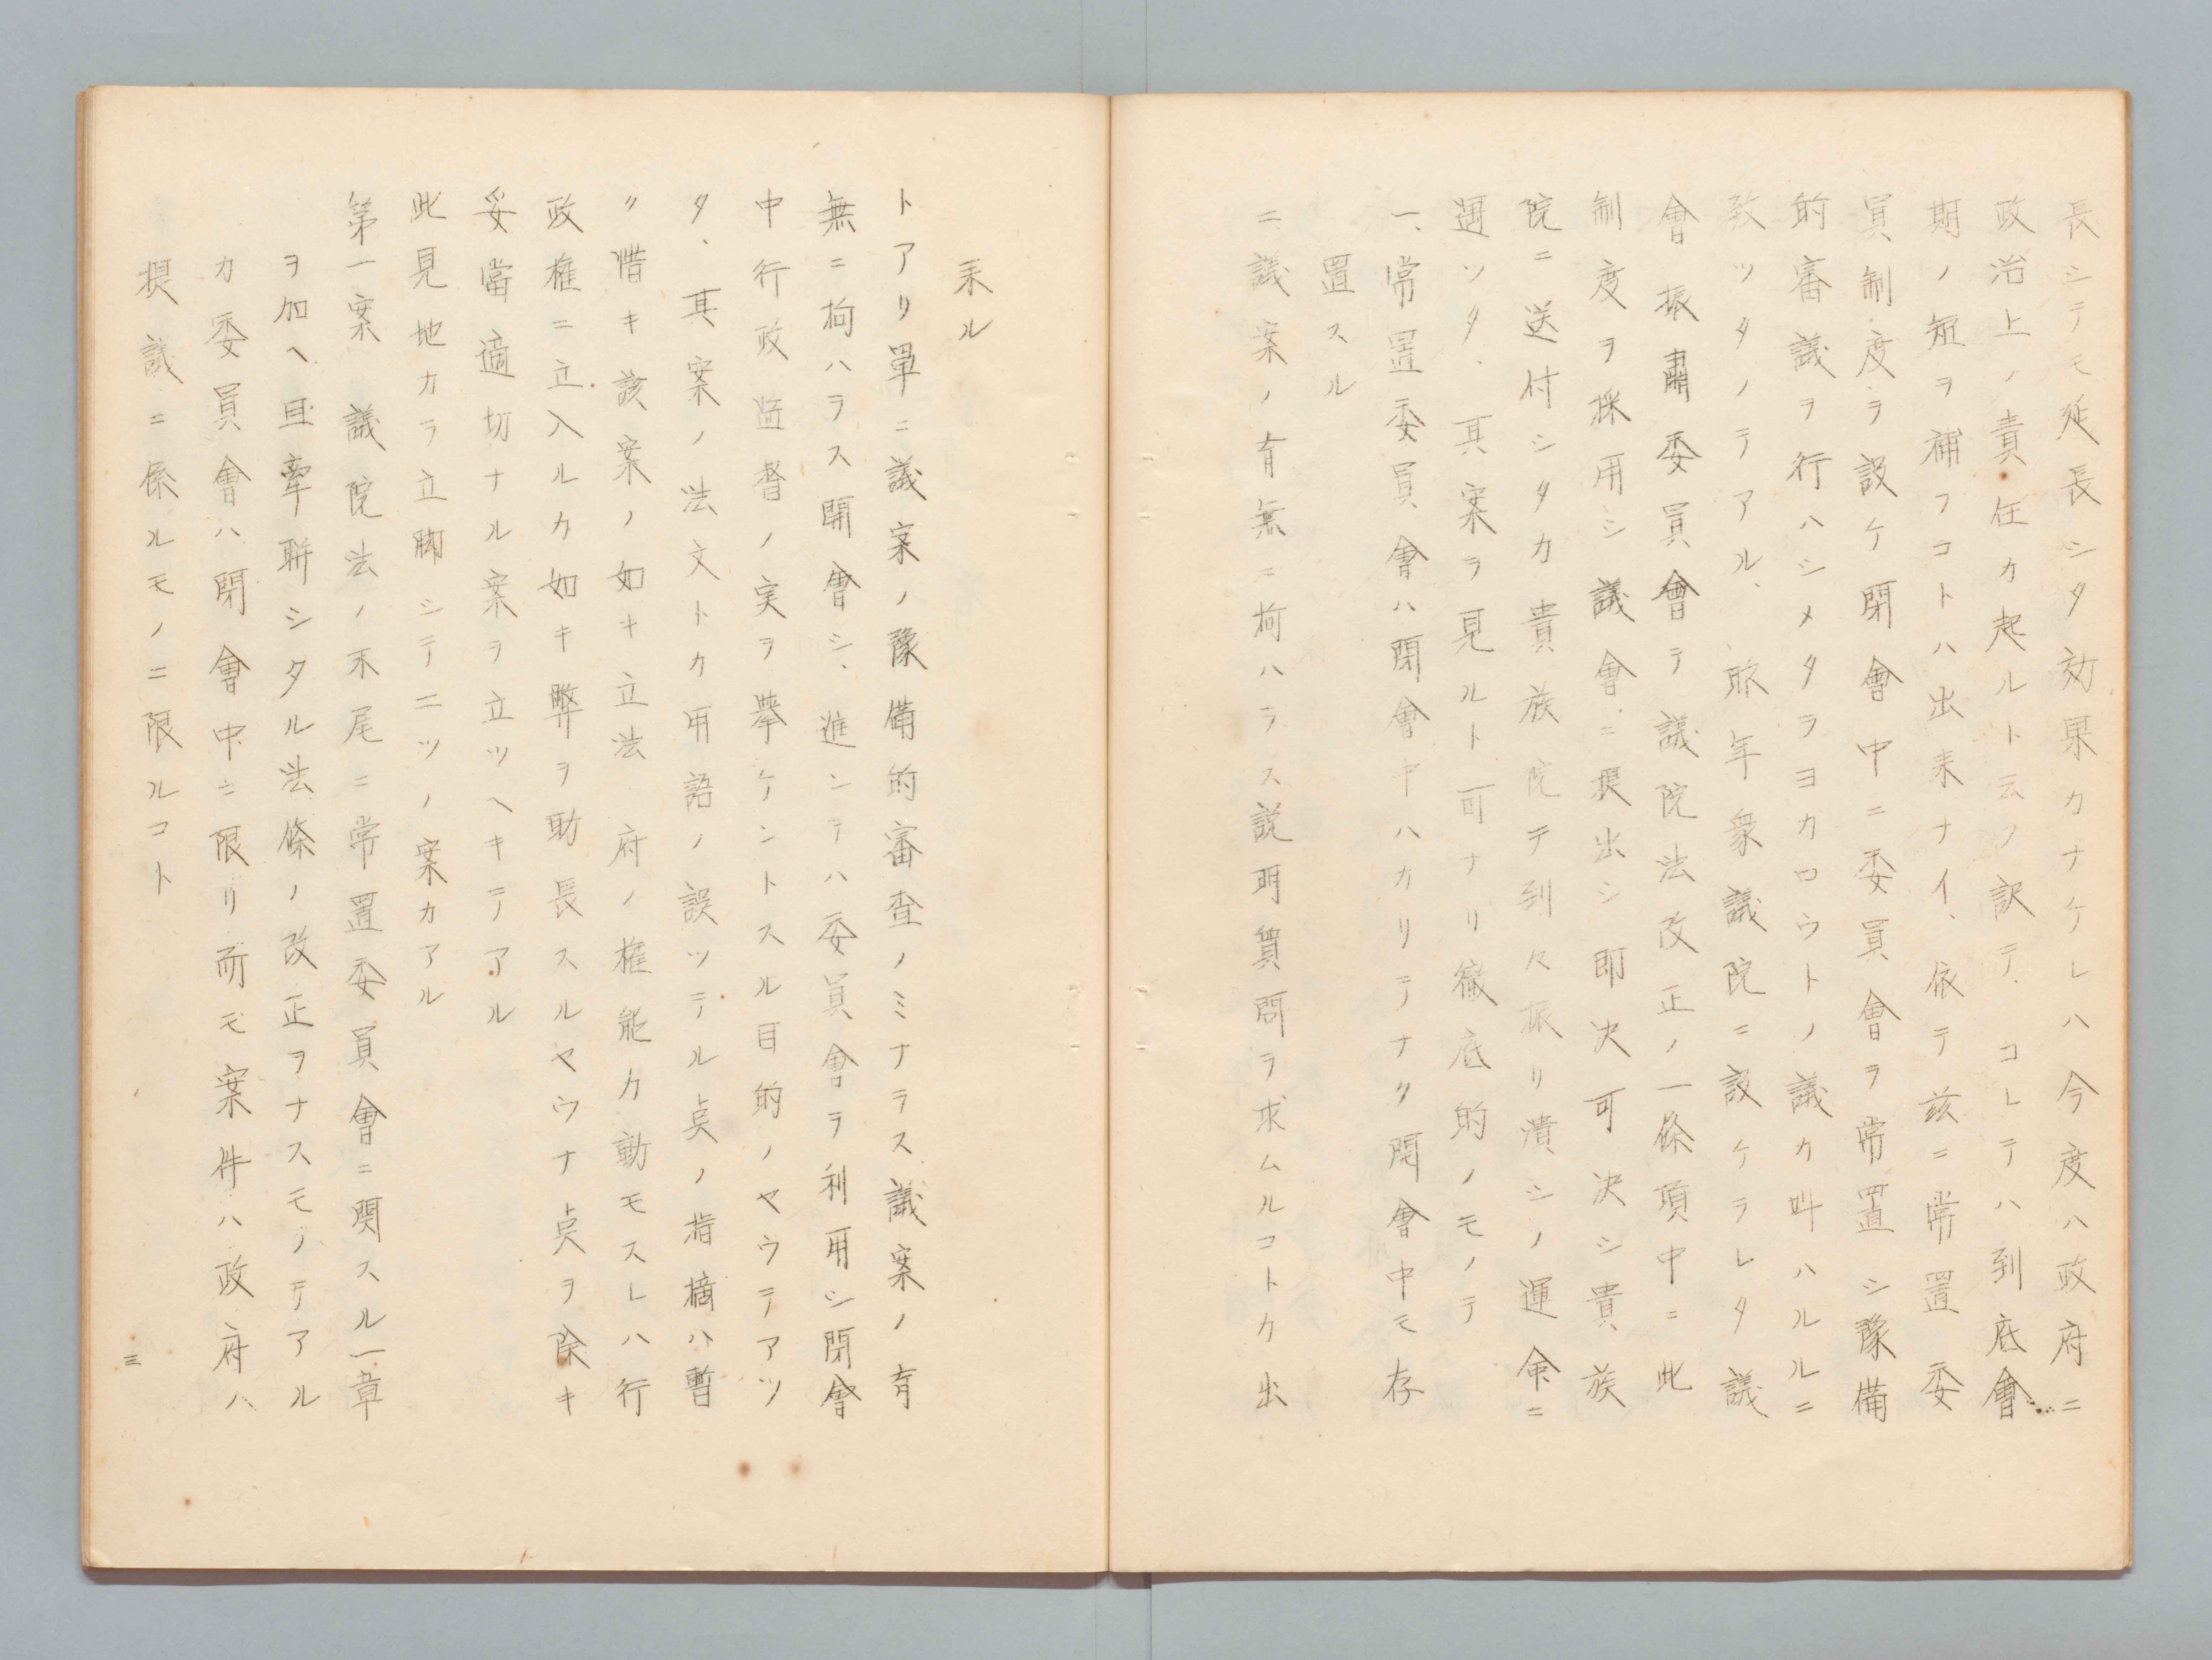 長シテモ延長シタ効果カナケレハ今度ハ政府ニ
政治上ノ責任カ起ルト云フ訳テ、コレテハ到底會
期ノ短ヲ補フコトハ出来ナイ、依テ玆ニ常置委
員制度ヲ設ケ閉會中ニ委員會ヲ常置シ豫備
的審議ヲ行ハシメタラヨカロウトノ議カ叫ハルルニ
致ツタノテアル、昨年衆議院ニ設ケラレタ議
會振肅委員會テ議院法改正ノ一條項中ニ此
制度ヲ採用シ議會ニ提出シ即決可決シ貴族
院ニ送付シタカ貴族院テ到々振リ潰シノ運命ニ
遇ツタ、其案ヲ見ルト可ナリ徹底的ノモノテ
一、常置委員會ハ閉會中ハカリテナク開會中モ存
置スル
二、議案ノ有無ニ拘ハラス説明質問ヲ求ムルコトカ出
来ル
トアリ單ニ議案ノ豫備的審査ノミナラス議案ノ有
無ニ拘ハラス開會シ、進ンテハ委員會ヲ利用シ閉會
中行政監督ノ実ヲ擧ケントスル目的ノヤウテアツ
タ、其案ノ法文トカ用語ノ誤ツテル点ノ指摘ハ暫
ク惜キ該案ノ如キ立法府ノ権能カ動モスレハ行
政権ニ立入ルカ如キ弊ヲ助長スルヤウナ点ヲ除キ
妥當適切ナル案ヲ立ツヘキテアル
此見地カラ立脚シテ二ツノ案カアル
第一案 議院法ノ末尾ニ常置委員會ニ関スル一章
ヲ加ヘ且牽聯シタル法條ノ改正ヲナスモノテアル
カ委員會ハ閉會中ニ限リ而モ案件ハ政府ハ
提議ニ係ルモノニ限ルコト
三